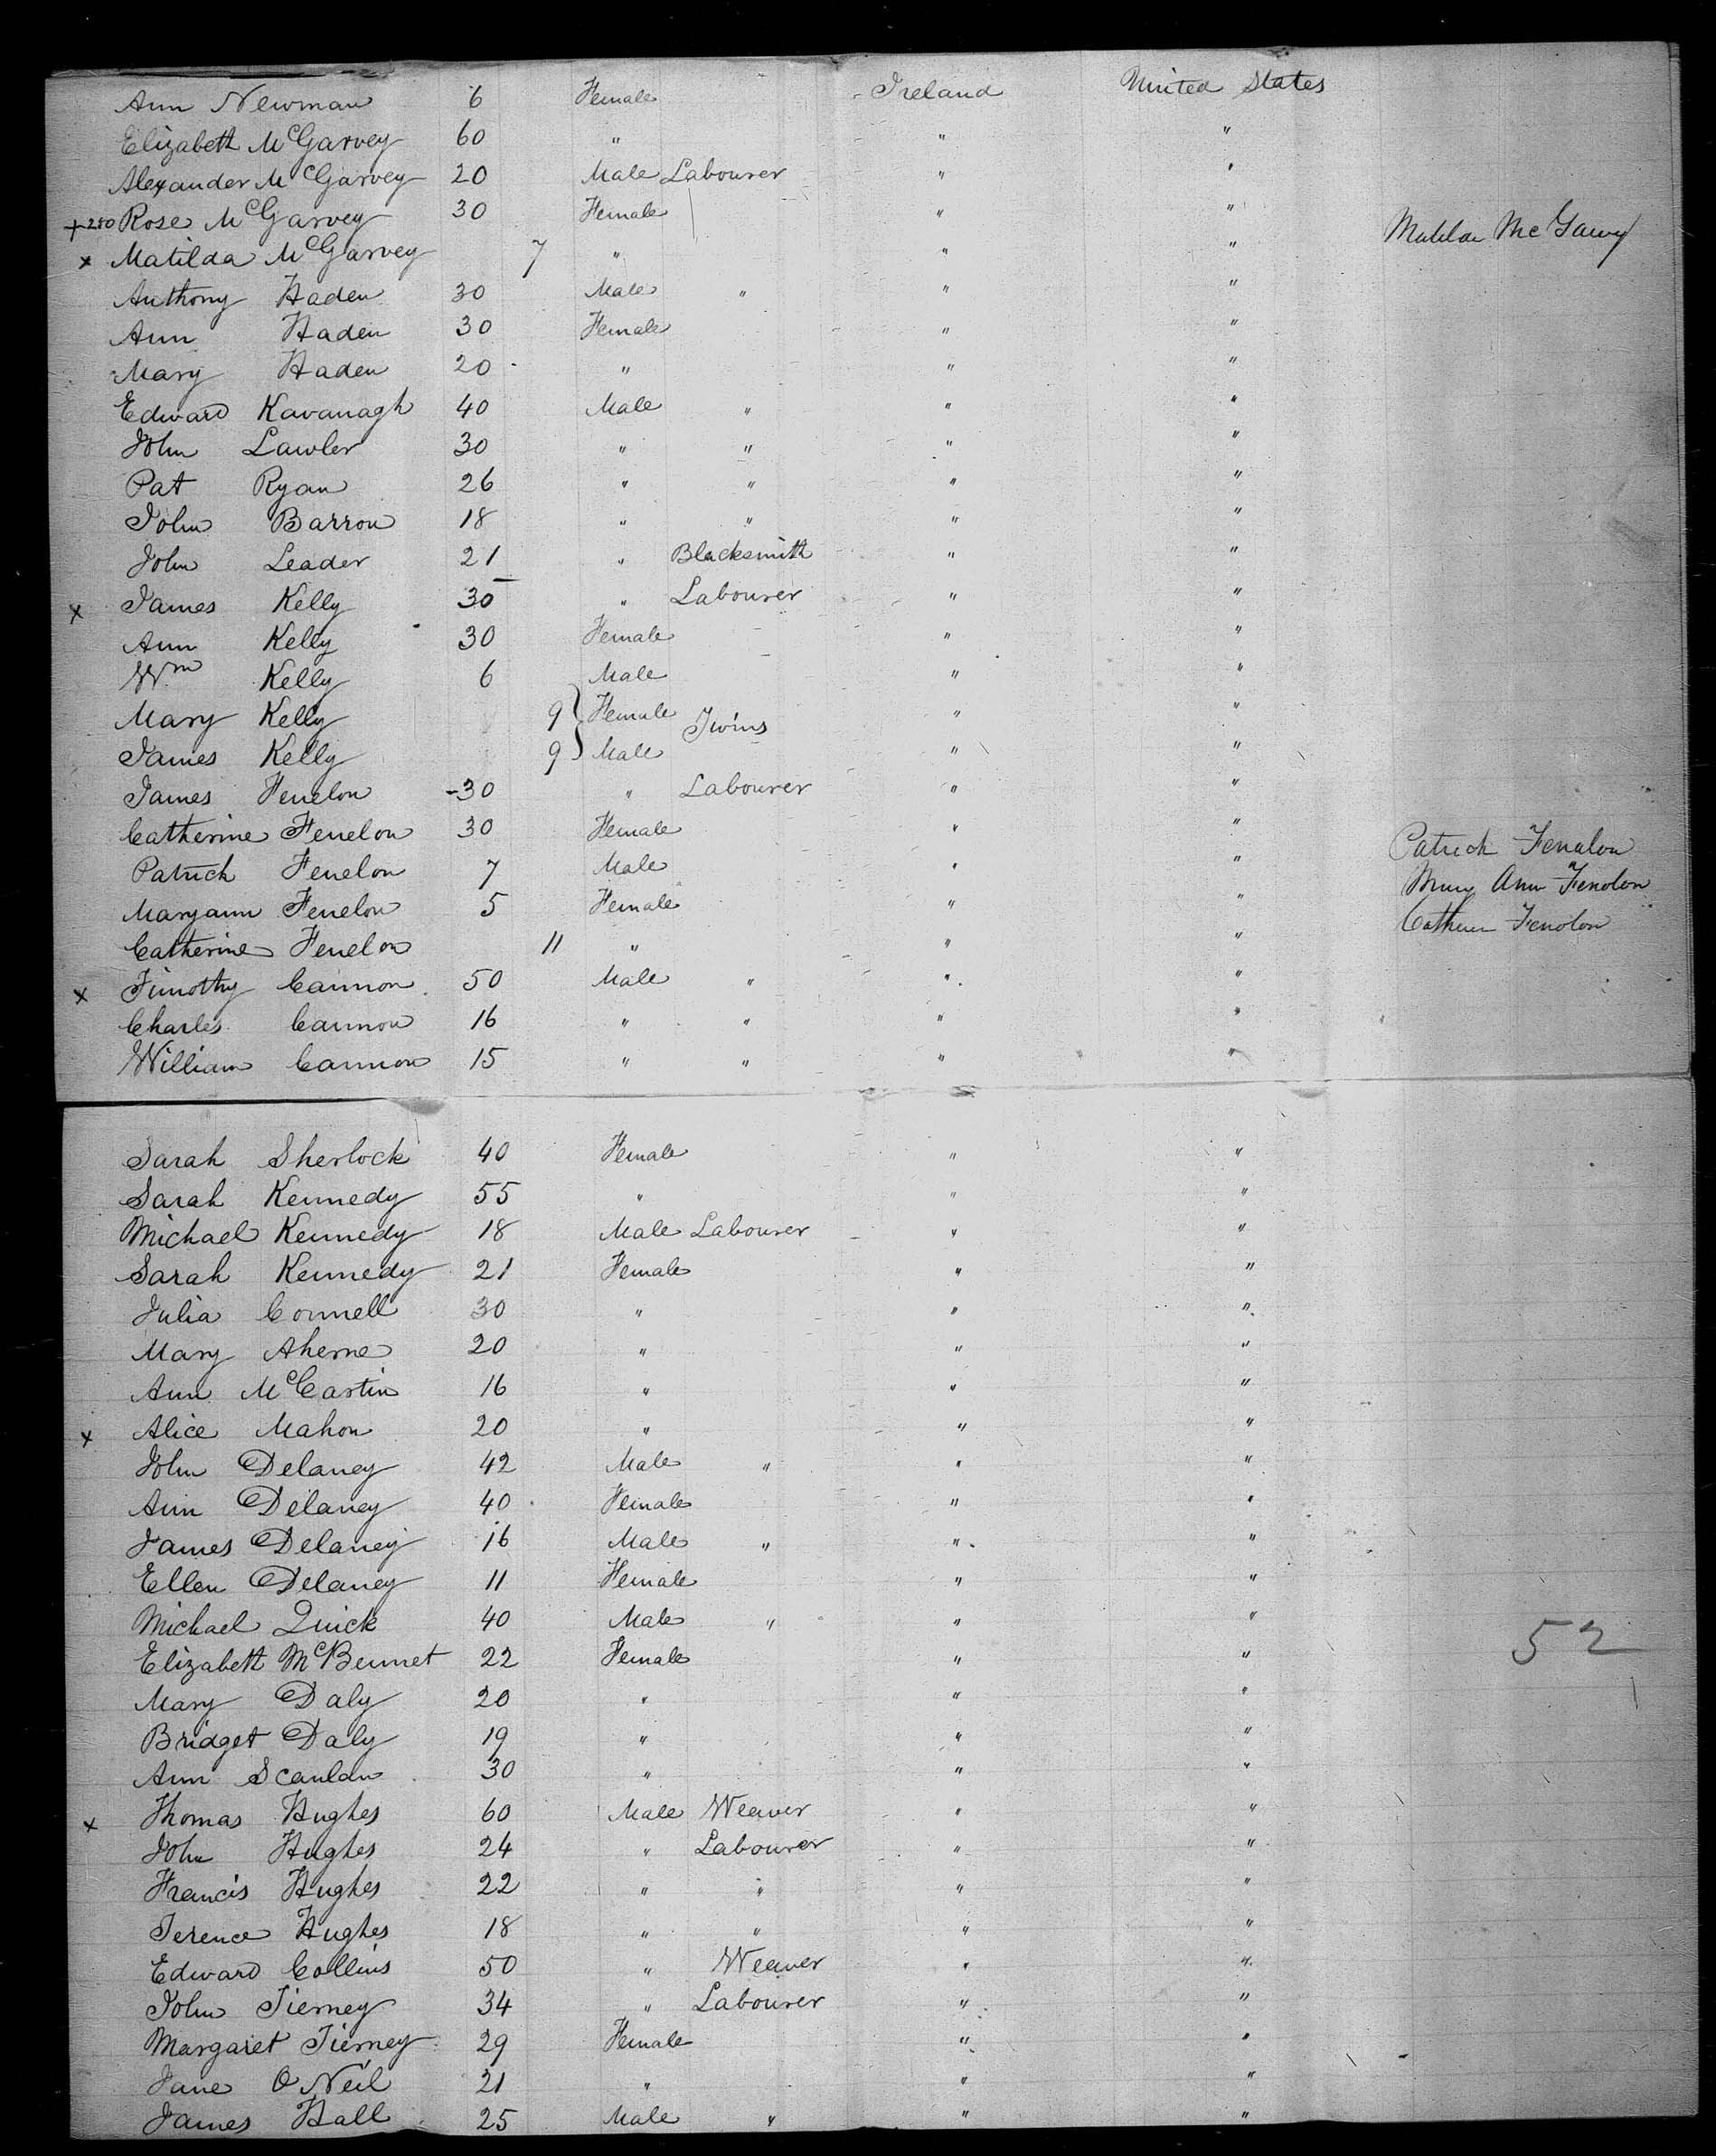 Ann Newman 6 Female Ireland United States
Elizabeth McGarvey 60 " " "
Alexander McGarvey 20 Male Labourer " "
+280 Rose McGarvey 30 Female " "
x Matilda McGarvey 7 " " " Matilda McGarvey
Anthony Haden 30 Male " " "
Ann Haden 30 Female " "
Mary Haden 20 " " "
Edward Kavanagh 40 Male " " "
John Lawler 30 " " " "
Pat Ryan 26 " " " "
John Barron 18 " " " "
John Leader 21 " Blacksmith " "
x James Kelly 30 " Labourer " "
Ann Kelly 30 Female " "
Wm Kelly 6 Male " "
Mary Kelly 9 } Female Twins " "
James Kelly 9 } Male " "
James Fenelon 30 " Labourer " "
Catherine Fenelon 30 Female " "
Patrick Fenelon 7 Male " " Patrick Fenalon
Maryann Fenelon 5 Female " " Mary Ann Fenolon
Catherine Fenelon 11 " " " Fenolon
x Timothy Cannon 50 Male " " "
Charles Cannon 16 " " " "
William Cannon 15 " " " "
Sarah Sherlock 40 Female " "
Sarah Kennedy 55 " " "
Michael Kennedy 18 Male Labourer " "
Sarah Kennedy 21 Female " "
Julia Connell 30 " " "
Mary Aherne 20 " " "
Ann McCartin 16 " " "
x Alice Mahon 20 " " "
John Delaney 42 Male " " "
Ann Delaney 40 Female " "
James Delaney 16 Male " " "
Ellen Delaney 11 Female " "
Michael Quick 40 Male " " "
Elizabeth McBennet 22 Female " " 52
Mary Daly 20 " " "
Bridget Daly 19 " " "
Ann Scanlan 30 " " "
x Thomas Hughes 60 Male Weaver " "
John Hughes 24 " Labourer " "
Francis Hughes 22 " " " "
Terence Hughes 18 " " " "
Edward Collins 50 " Weaver " "
John Tierney 34 " Labourer " "
Margaret Tierney 29 Female " "
Jane O'Neil 21 " " "
James Hall 25 Male " " "